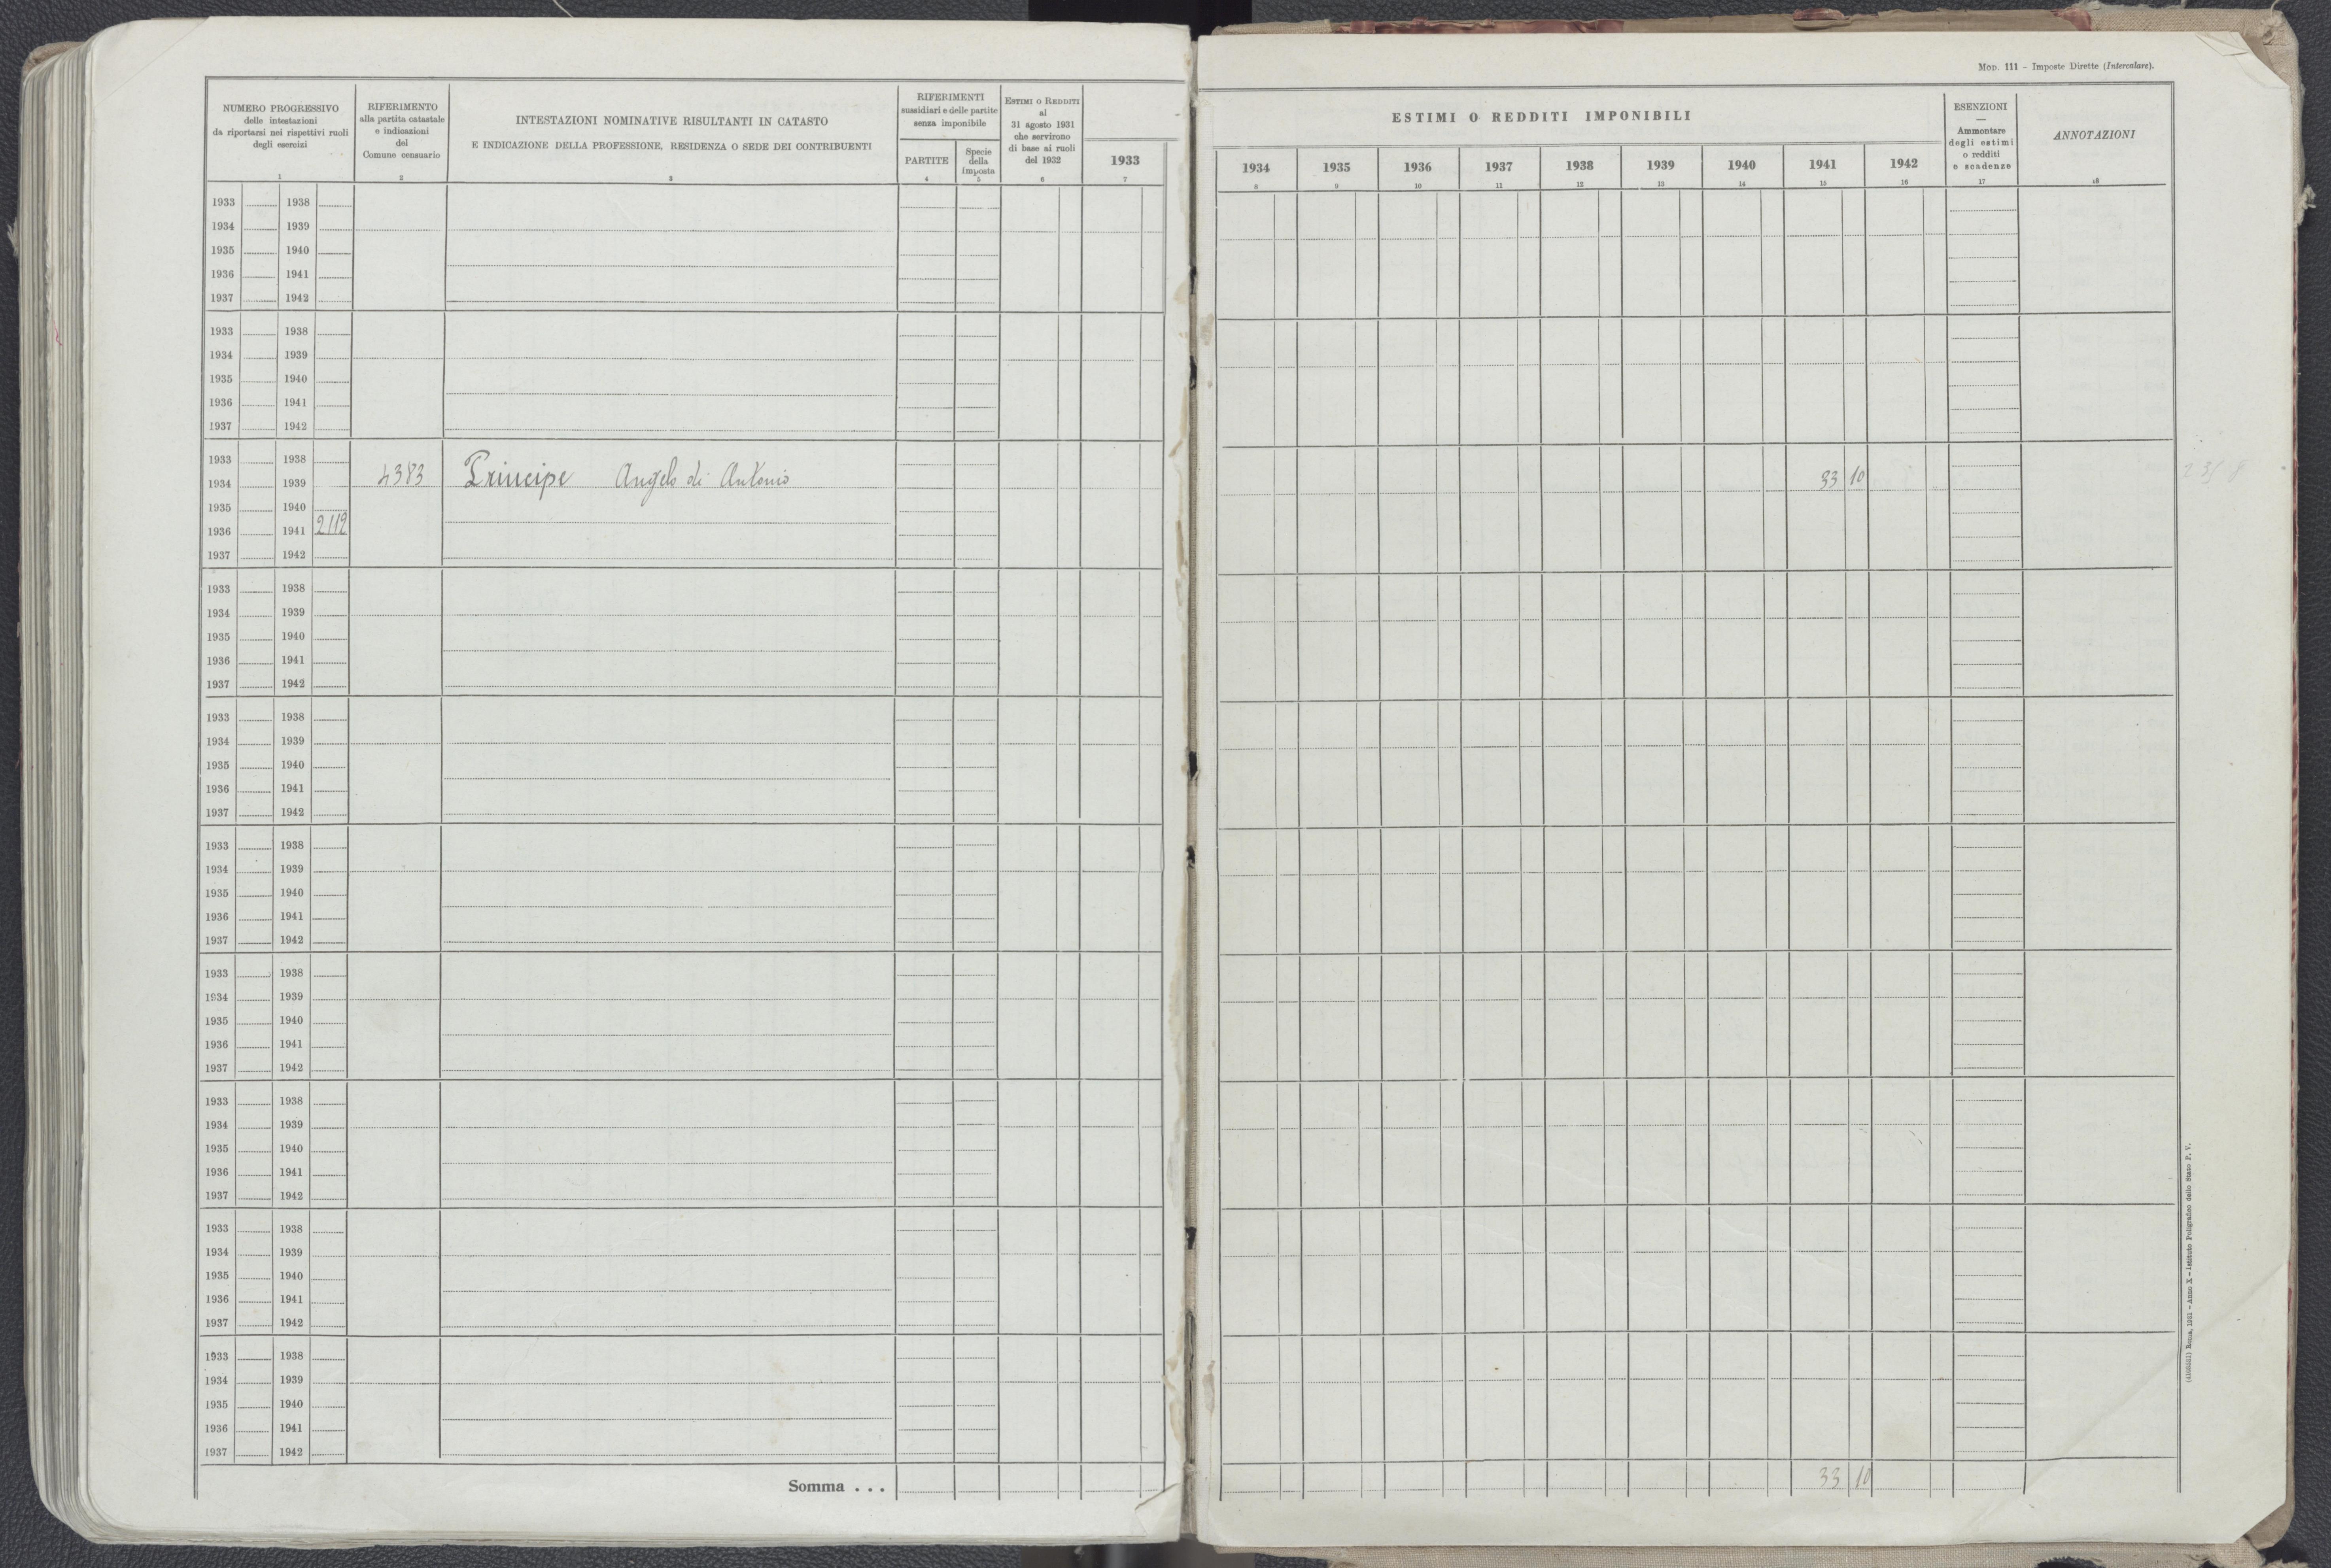 Mod. 111 - Imposte Dirette (Intercalare).
NUMERO PROGRESSIVO
delle intestazioni
da riportarsi nei rispettivi ruoli
degli esercizi
1
RIFERIMENTO
alla partita catastale
e indicazioni
del
Comune censuario
2
INTESTAZIONI NOMINATIVE RISULTANTI IN CATASTO
E INDICAZIONE DELLA PROFESSIONE, RESIDENZA O SEDE DEI CONTRIBUENTI
3
RIFERIMENTI
sussidiari e delle partite
senza imponibile
PARTITE
4
Specie
della
imposta
5
ESTIMI O REDDITI
al
31 agosto 1931
che servirono
di base ai ruoli
del 1932
6
1933
7
ESTIMI O REDDITI IMPONIBILI
1934 1935 1936 1937 1938 1939 1940 1941 1942
8 9 10 11 12 13 14 15 16
ESENZIONI
—
Ammontare
degli estimi
o redditi
e scadenze
17
ANNOTAZIONI
18
1933 1938
1934 1939
1935 1940
1936 1941
1937 1942
1933 1938
1934 1939
1935 1940
1936 1941
1937 1942
1933 1938
1934 1939 4383 Principe Angelo di Antonio 33 10
1935 1940
1936 1941 2112
1937 1942
1933 1938
1934 1939
1935 1940
1936 1941
1937 1942
1933 1938
1934 1939
1935 1940
1936 1941
1937 1942
1933 1938
1934 1939
1935 1940
1936 1941
1937 1942
1933 1938
1934 1939
1935 1940
1936 1941
1937 1942
1933 1938
1934 1939
1935 1940
1936 1941
1937 1942
1933 1938
1934 1939
1935 1940
1936 1941
1937 1942
1933 1938
1934 1939
1935 1940
1936 1941
1937 1942
Somma . . . 33 10
Roma, 1931 - Anno X - Istituto Poligrafico dello Stato P. V.